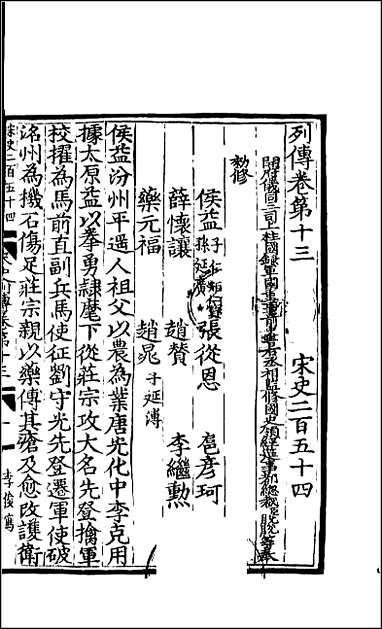 列傳卷第十三 宋史二百五十四
開府儀同三司上柱國録軍國重事前中書右丞相監修國史領經筵事都總裁臣脫脫等奉
勑修
侯益 子仁矩 仁寶 孫延廣 張從恩 扈彦珂
薛懷讓 趙贊 李繼勳
藥元福 趙晁 子延溥
侯益汾州平遥人祖父以農為業唐光化中李克用
據太原益以拳勇隷麾下從莊宗攻大名先登擒軍
校擢為馬前直副兵馬使征劉守光先登遷軍使破
洺州為機石傷足莊宗親以藥傅其瘡及愈改護衛
宋史二百五十四
李俊寫